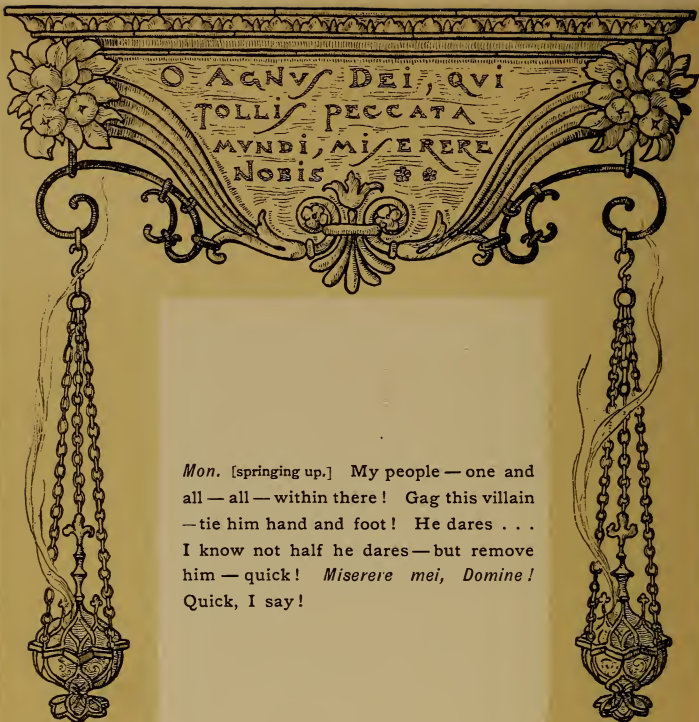 O AGNVS DEI, QVI
TOLLIS PECCATA
MVNDI, MISERERE
NOBIS
Mon. [springing up.] My people — one and
all — all — within there! Gag this villain
— tie him hand and foot! He dares . . .
I know not half he dares — but remove
him — quick! Miserere mei, Domine!
Quick, I say!